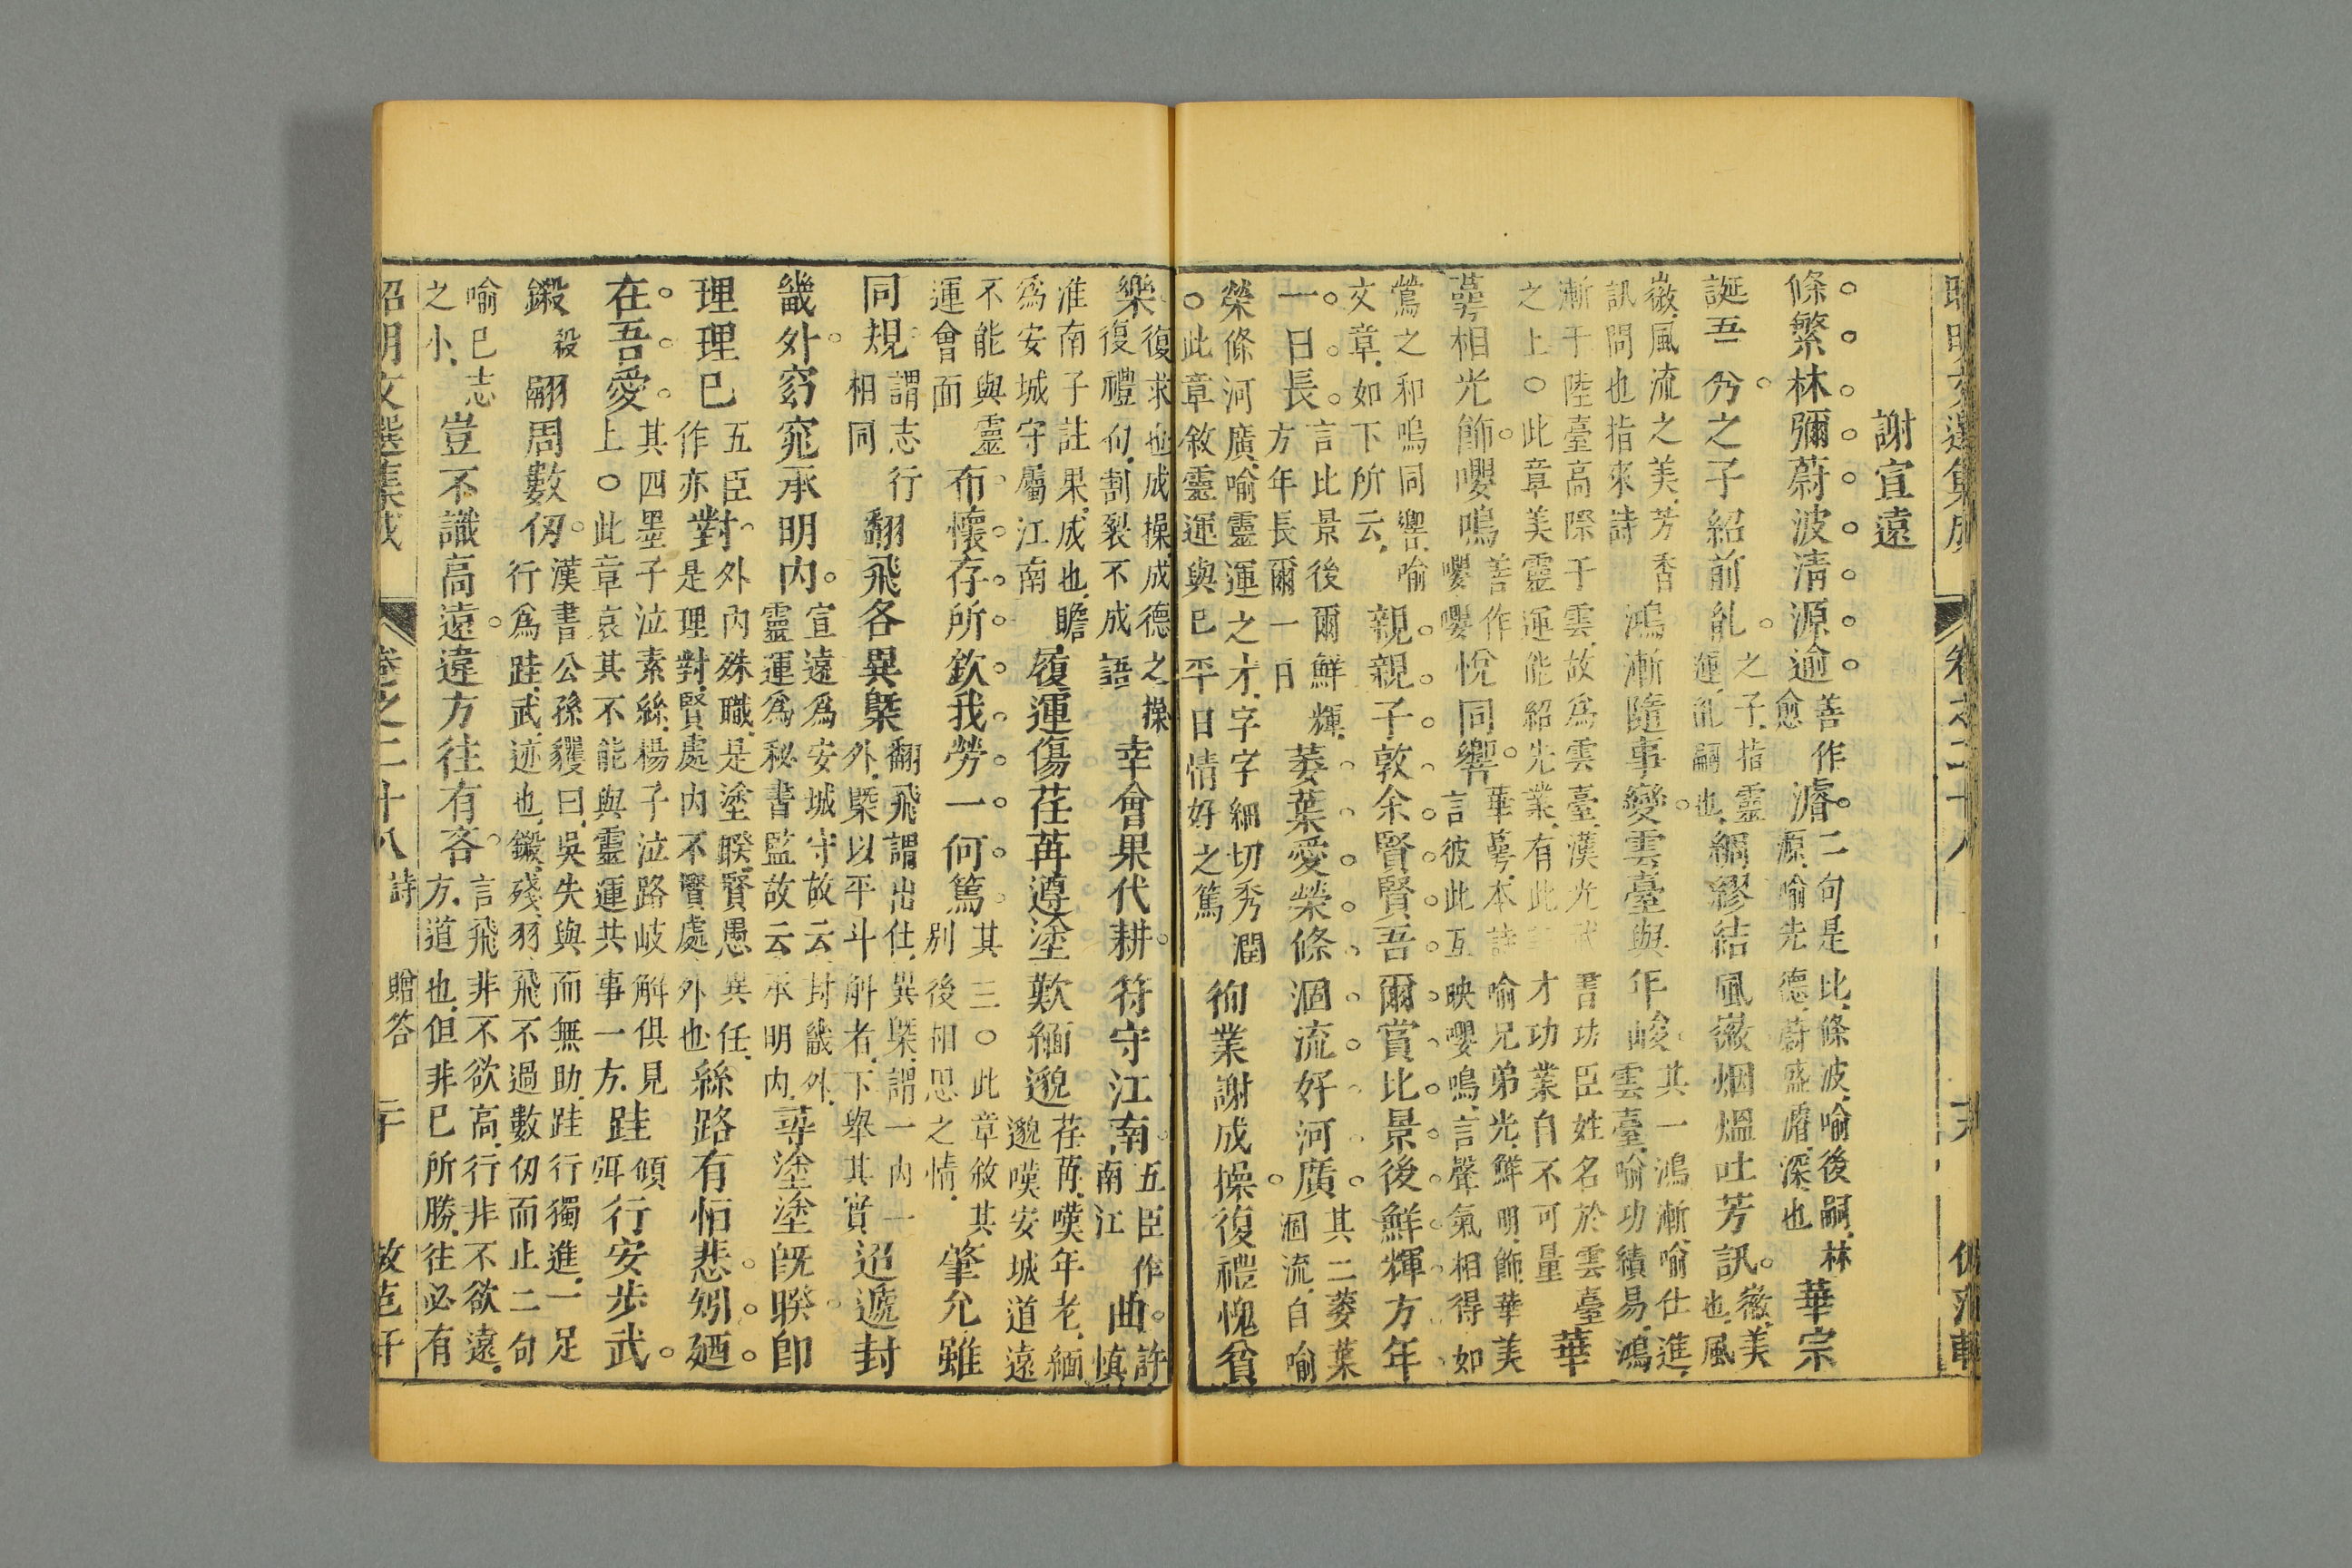 謝宣遠
條繁林彌蔚波清源逾善作愈濬二句是比條波喻後嗣林源喻先德蔚盛濬深也華宗
誕吾秀之子紹前胤之子指靈運胤嗣也綢繆結風徽烟熅吐芳訊徽美也風
徽風流之美芳香訊問也指來詩鴻漸隨事變雲臺與年峻其一鴻漸喻仕進雲臺喻功績易鴻
漸于陸臺高際于雲故為雲臺漢光武書功臣姓名於雲臺之上○此章美靈運能紹先業有此才功業自不可量華
萼相光飾嚶鳴善作嚶嚶悅同響華萼本詩喻兄弟光鮮明飾華美言彼此互映嚶鳴言聲氣相得如
鶯之和鳴同響喻文章如下所云親親子敦余賢賢吾爾賞比景後鮮輝方年
一日長言比景後爾鮮輝方年長爾一日萎葉愛榮條涸流好河廣其二萎葉涸流自喻
榮條河廣喻靈運之才字字細切秀潤○此章敘靈運與已平日情好之篤徇業謝成操復禮愧貧
樂復求也成操成德之操復禮句割裂不成語幸會果代耕符守江南五臣作南江曲許慎
淮南子註果成也瞻為安城守屬江南履運傷荏苒遵塗歎緬邈荏苒嘆年老緬邈嘆安城道遠
不能與靈運會面布懷存所欽我勞一何篤其三○此章敘其別後相思之情肇允雖
同規謂志行相同翻飛各異槩翻飛謂出仕異槩謂一內一外槩以平斗斛者下舉其實迢遞封
畿外窈窕承明內宣遠為安城守故云封畿外靈運為秘書監故云承明內尋塗塗旣睽即
理理已五臣作亦對外內殊職是塗睽賢愚異任是理對賢處內不賢處外也絲路有恒悲矧廼
在吾愛其四墨子泣素絲楊子泣路岐解俱見上○此章哀其不能與靈運共事一方跬傾弭行安步武
鎩殺翮周數仞漢書公孫玃曰吳失與而無助跬行獨進一足行為跬武迹也鎩殘羽飛不過數仞而止二句
喻已志之小豈不識高遠違方往有吝言飛非不欲高行非不欲遠方道也但非已所勝往必有
卷之二十八 詩 贈答